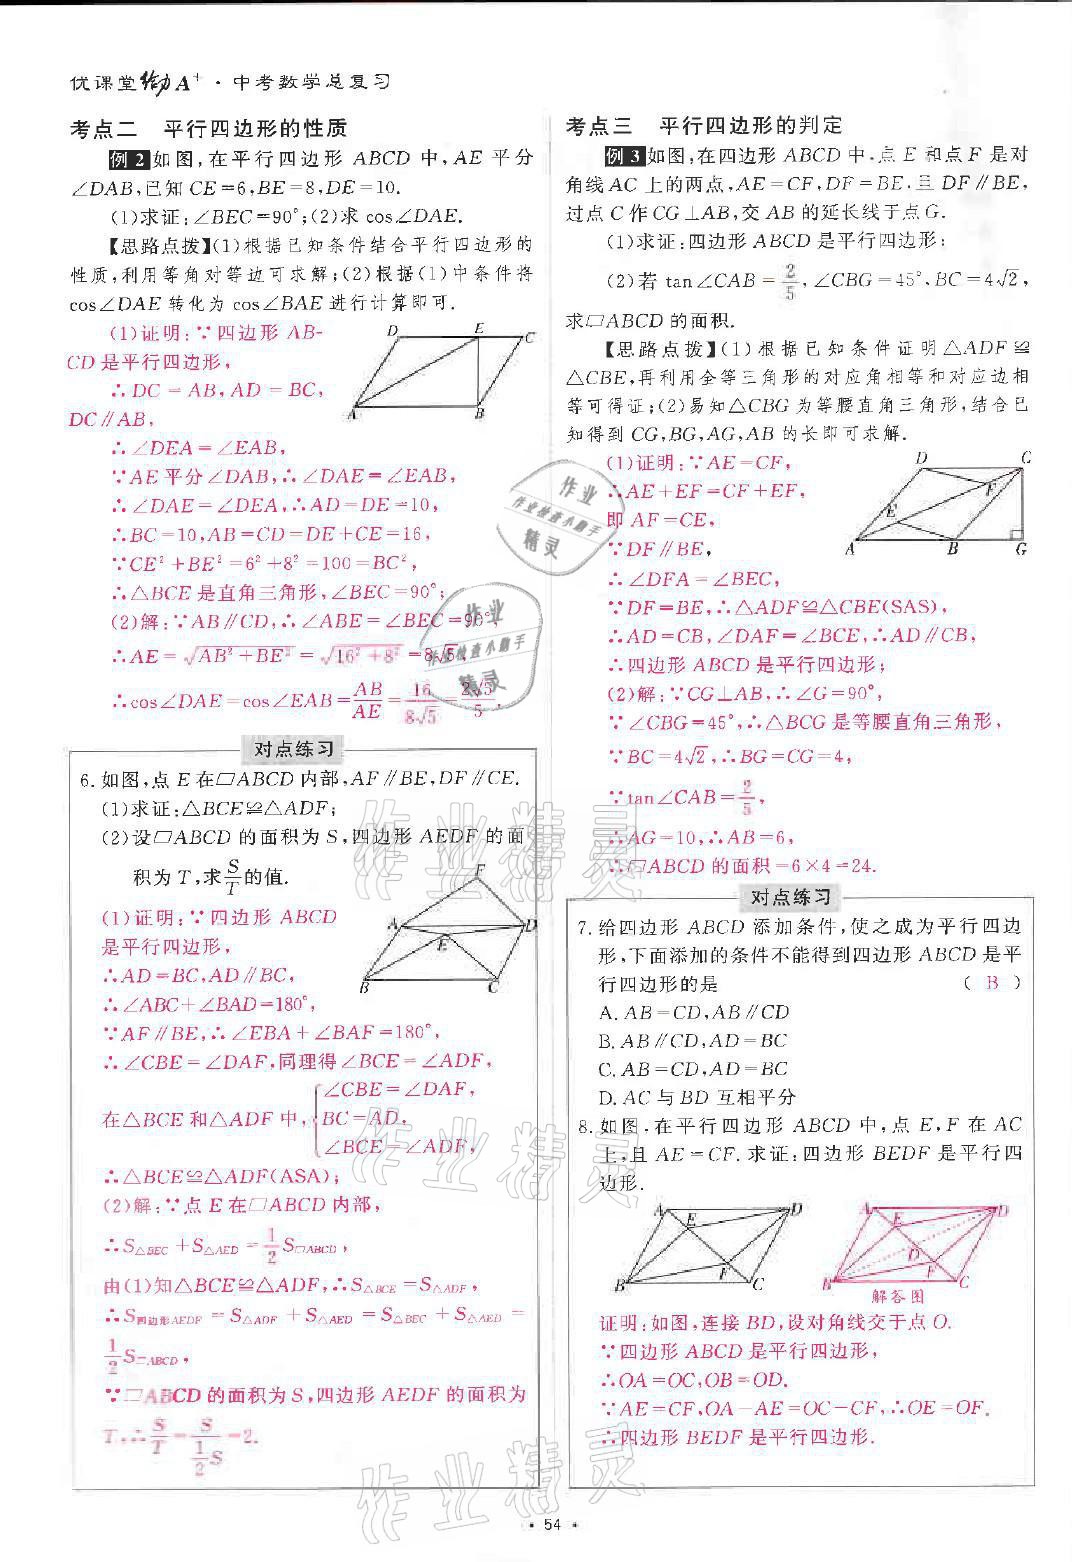 优课堂给力A⁺·中考数学总复习
考点二 平行四边形的性质
例2 如图,在平行四边形 ABCD 中,AE 平分
∠DAB,已知 CE=6,BE=8,DE=10.
(1)求证:∠BEC=90°;(2)求 cos∠DAE.
【思路点拨】(1)根据已知条件结合平行四边形的
性质,利用等角对等边可求解;(2)根据(1)中条件将
cos∠DAE 转化为 cos∠BAE 进行计算即可.
(1)证明:∵四边形 AB-
CD 是平行四边形,
∴DC=AB,AD=BC,
DC∥AB,
D E C
A B
∴∠DEA=∠EAB,
∵AE 平分∠DAB,∴∠DAE=∠EAB,
∴∠DAE=∠DEA,∴AD=DE=10,
∴BC=10,AB=CD=DE+CE=16,
∵CE²+BE²=6²+8²=100=BC²,
∴△BCE 是直角三角形,∠BEC=90°;
(2)解:∵AB∥CD,∴∠ABE=∠BEC=90°,
∴AE=√(AB²+BE²)=√(16²+8²)=8√5,
∴cos∠DAE=cos∠EAB=AB/AE=16/8√5=2√5/5.
对点练习
6. 如图,点 E 在▱ABCD 内部,AF∥BE,DF∥CE.
(1)求证:△BCE≌△ADF;
(2)设▱ABCD 的面积为 S,四边形 AEDF 的面
积为 T,求S/T的值.
(1)证明:∵四边形 ABCD
是平行四边形,
∴AD=BC,AD∥BC,
∴∠ABC+∠BAD=180°,
F
A D
E
B C
∵AF∥BE,∴∠EBA+∠BAF=180°,
∴∠CBE=∠DAF,同理得∠BCE=∠ADF,
在△BCE 和△ADF 中,{∠CBE=∠DAF,
BC=AD,
∠BCE=∠ADF,
∴△BCE≌△ADF(ASA);
(2)解:∵点 E 在▱ABCD 内部,
∴S△BEC+S△AED=1/2S▱ABCD,
由(1)知△BCE≌△ADF,∴S△BCE=S△ADF,
∴S四边形AEDF=S△ADF+S△AED=S△BEC+S△AED=
1/2S▱ABCD,
∵▱ABCD 的面积为 S,四边形 AEDF 的面积为
T,∴S/T=S/(1/2S)=2.
考点三 平行四边形的判定
例3 如图,在四边形 ABCD 中,点 E 和点 F 是对
角线 AC 上的两点,AE=CF,DF=BE,且 DF∥BE,
过点 C 作 CG⊥AB,交 AB 的延长线于点 G.
(1)求证:四边形 ABCD 是平行四边形;
(2)若 tan∠CAB=2/5,∠CBG=45°,BC=4√2,
求▱ABCD 的面积.
【思路点拨】(1)根据已知条件证明△ADF≌
△CBE,再利用全等三角形的对应角相等和对应边相
等可得证;(2)易知△CBG 为等腰直角三角形,结合已
知得到 CG,BG,AG,AB 的长即可求解.
(1)证明:∵AE=CF,
∴AE+EF=CF+EF,
即 AF=CE,
∵DF∥BE,
D C
F
E
A B G
∴∠DFA=∠BEC,
∵DF=BE,∴△ADF≌△CBE(SAS),
∴AD=CB,∠DAF=∠BCE,∴AD∥CB,
∴四边形 ABCD 是平行四边形;
(2)解:∵CG⊥AB,∴∠G=90°,
∵∠CBG=45°,∴△BCG 是等腰直角三角形,
∵BC=4√2,∴BG=CG=4,
∵tan∠CAB=2/5,
∴AG=10,∴AB=6,
∴▱ABCD 的面积=6×4=24.
对点练习
7. 给四边形 ABCD 添加条件,使之成为平行四边
形,下面添加的条件不能得到四边形 ABCD 是平
行四边形的是 ( B )
A. AB=CD,AB∥CD
B. AB∥CD,AD=BC
C. AB=CD,AD=BC
D. AC 与 BD 互相平分
8. 如图,在平行四边形 ABCD 中,点 E,F 在 AC
上,且 AE=CF.求证:四边形 BEDF 是平行四
边形.
A D
E
F
B C
A D
E
O
F
B C
解答图
证明:如图,连接 BD,设对角线交于点 O.
∵四边形 ABCD 是平行四边形,
∴OA=OC,OB=OD.
∵AE=CF,OA-AE=OC-CF,∴OE=OF.
∴四边形 BEDF 是平行四边形.
作业
作业检查小助手
精灵
作业
作业检查小助手
精灵
作业精灵
作业精灵
作业精灵
· 54 ·